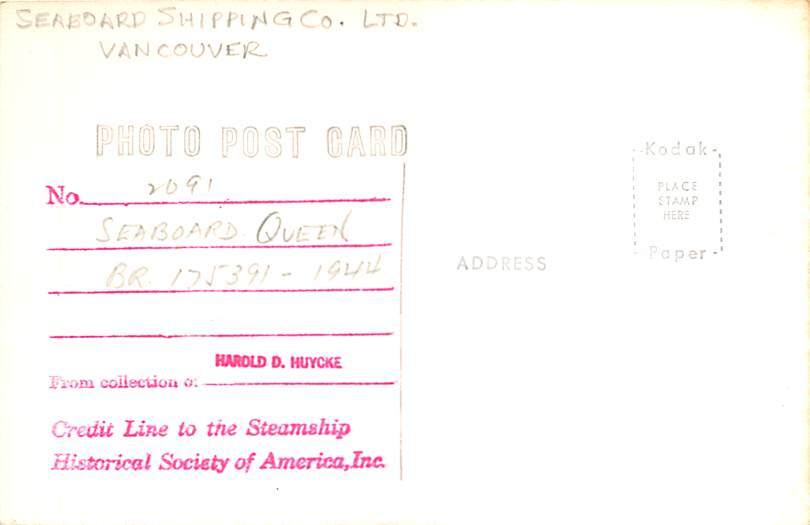 SEABOARD SHIPPING CO. LTD.
VANCOUVER
PHOTO POST CARD
No. 2091
SEABOARD QUEEN
BR. 175391 - 1944
HAROLD D. HUYCKE
From collection of
Credit Line to the Steamship
Historical Society of America, Inc.
ADDRESS
Kodak
PLACE
STAMP
HERE
Paper